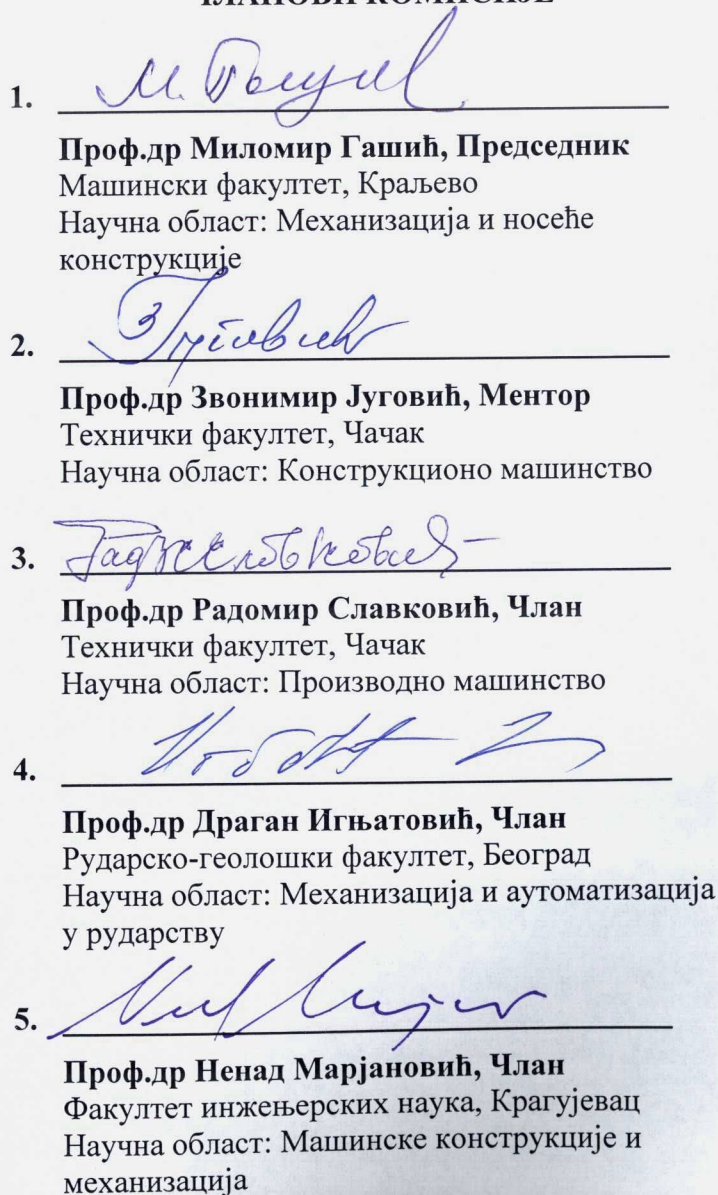 ЧЛАНОВИ КОМИСИЈЕ
1.
Проф.др Миломир Гашић, Председник
Машински факултет, Краљево
Научна област: Механизација и носеће
конструкције
2.
Проф.др Звонимир Југовић, Ментор
Технички факултет, Чачак
Научна област: Конструкционо машинство
3.
Проф.др Радомир Славковић, Члан
Технички факултет, Чачак
Научна област: Производно машинство
4.
Проф.др Драган Игњатовић, Члан
Рударско-геолошки факултет, Београд
Научна област: Механизација и аутоматизација
у рударству
5.
Проф.др Ненад Марјановић, Члан
Факултет инжењерских наука, Крагујевац
Научна област: Машинске конструкције и
механизација